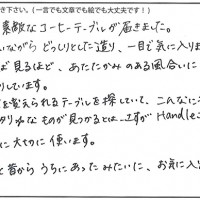 き下さい。(一言でも文章でも絵でも大丈夫です!)
素敵なコーヒーテーブルが届きました。
いながら どっしりとした造り、一目で気に入りま
ば見るほど、あたたかみのある風合いに
りしています。
を変えられるテーブルを探していて、こんなに
タリなものが見つかるとは…さすがHandle
に大切に使います。
と昔から うちにあったみたいに、お気に入